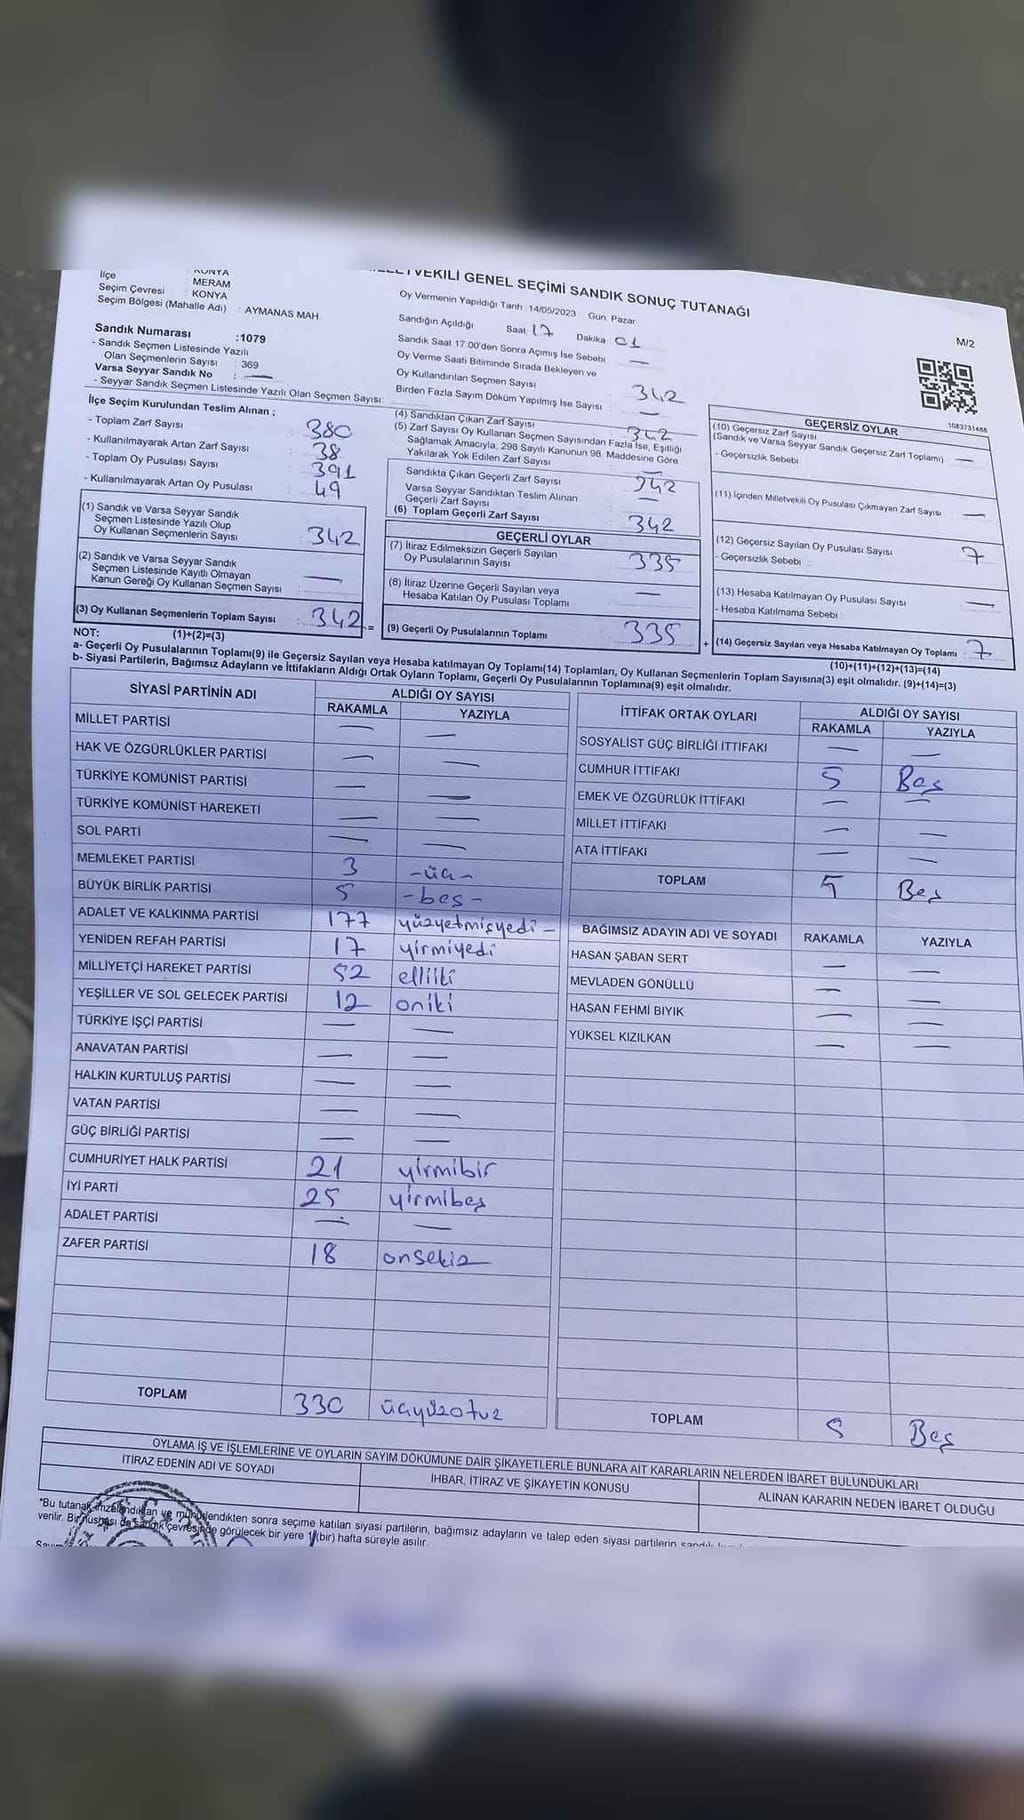 KONYA
İlçe : MERAM
Seçim Çevresi : KONYA
Seçim Bölgesi (Mahalle Adı) : AYMANAS MAH
MİLLETVEKİLİ GENEL SEÇİMİ SANDIK SONUÇ TUTANAĞI
Oy Vermenin Yapıldığı Tarih : 14/05/2023 Gün: Pazar
M/2
Sandık Numarası :1079
- Sandık Seçmen Listesinde Yazılı
Olan Seçmenlerin Sayısı : 369
Varsa Seyyar Sandık No : —
- Seyyar Sandık Seçmen Listesinde Yazılı Olan Seçmen Sayısı:
Sandığın Açıldığı Saat 17 Dakika 01
Sandık Saat 17:00'den Sonra Açımış İse Sebebi —
Oy Verme Saati Bitiminde Sırada Bekleyen ve
Oy Kullandırılan Seçmen Sayısı 342
Birden Fazla Sayım Döküm Yapılmış İse Sayısı —
İlçe Seçim Kurulundan Teslim Alınan ;
- Toplam Zarf Sayısı : 380
- Kullanılmayarak Artan Zarf Sayısı : 38
- Toplam Oy Pusulası Sayısı : 391
- Kullanılmayarak Artan Oy Pusulası : 49
(1) Sandık ve Varsa Seyyar Sandık
Seçmen Listesinde Yazılı Olup
Oy Kullanan Seçmenlerin Sayısı : 342
(2) Sandık ve Varsa Seyyar Sandık
Seçmen Listesinde Kayıtlı Olmayan
Kanun Gereği Oy Kullanan Seçmen Sayısı : —
(3) Oy Kullanan Seçmenlerin Toplam Sayısı : 342 =
(1)+(2)=(3)
(4) Sandıktan Çıkan Zarf Sayısı : 342
(5) Zarf Sayısı Oy Kullanan Seçmen Sayısından Fazla İse, Eşitliği
Sağlamak Amacıyla, 298 Sayılı Kanunun 98. Maddesine Göre
Yakılarak Yok Edilen Zarf Sayısı —
Sandıkta Çıkan Geçerli Zarf Sayısı : 342
Varsa Seyyar Sandıktan Teslim Alınan
Geçerli Zarf Sayısı —
(6) Toplam Geçerli Zarf Sayısı : 342
GEÇERLİ OYLAR
(7) İtiraz Edilmeksizin Geçerli Sayılan
Oy Pusulalarının Sayısı : 335
(8) İtiraz Üzerine Geçerli Sayılan veya
Hesaba Katılan Oy Pusulası Toplamı : —
(9) Geçerli Oy Pusulalarının Toplamı : 335 +
1083731455
GEÇERSİZ OYLAR
(10) Geçersiz Zarf Sayısı
(Sandık ve Varsa Seyyar Sandık Geçersiz Zarf Toplamı) : —
- Geçersizlik Sebebi :
(11) İçinden Milletvekili Oy Pusulası Çıkmayan Zarf Sayısı : —
(12) Geçersiz Sayılan Oy Pusulası Sayısı : 7
- Geçersizlik Sebebi :
(13) Hesaba Katılmayan Oy Pusulası Sayısı : —
- Hesaba Katılmama Sebebi :
(14) Geçersiz Sayılan veya Hesaba Katılmayan Oy Toplamı : 7
(10)+(11)+(12)+(13)=(14)
NOT:
a- Geçerli Oy Pusulalarının Toplamı(9) ile Geçersiz Sayılan veya Hesaba katılmayan Oy Toplamı(14) Toplamları, Oy Kullanan Seçmenlerin Toplam Sayısına(3) eşit olmalıdır. (9)+(14)=(3)
b- Siyasi Partilerin, Bağımsız Adayların ve İttifakların Aldığı Ortak Oyların Toplamı, Geçerli Oy Pusulalarının Toplamına(9) eşit olmalıdır.
SİYASİ PARTİNİN ADI ALDIĞI OY SAYISI
RAKAMLA YAZIYLA
MİLLET PARTİSİ — —
HAK VE ÖZGÜRLÜKLER PARTİSİ — —
TÜRKİYE KOMÜNİST PARTİSİ — —
TÜRKİYE KOMÜNİST HAREKETİ — —
SOL PARTİ — —
MEMLEKET PARTİSİ 3 -üç-
BÜYÜK BİRLİK PARTİSİ 5 -beş-
ADALET VE KALKINMA PARTİSİ 177 yüzyetmişyedi -
YENİDEN REFAH PARTİSİ 17 yirmiyedi
MİLLİYETÇİ HAREKET PARTİSİ 52 elliiki
YEŞİLLER VE SOL GELECEK PARTİSİ 12 oniki
TÜRKİYE İŞÇİ PARTİSİ — —
ANAVATAN PARTİSİ — —
HALKIN KURTULUŞ PARTİSİ — —
VATAN PARTİSİ — —
GÜÇ BİRLİĞİ PARTİSİ — —
CUMHURİYET HALK PARTİSİ 21 yirmibir
İYİ PARTİ 25 yirmibeş
ADALET PARTİSİ — —
ZAFER PARTİSİ 18 onsekiz
TOPLAM 330 üçyüzotuz
İTTİFAK ORTAK OYLARI ALDIĞI OY SAYISI
RAKAMLA YAZIYLA
SOSYALİST GÜÇ BİRLİĞİ İTTİFAKI — —
CUMHUR İTTİFAKI 5 Beş
EMEK VE ÖZGÜRLÜK İTTİFAKI — —
MİLLET İTTİFAKI — —
ATA İTTİFAKI — —
TOPLAM 5 Beş
BAĞIMSIZ ADAYIN ADI VE SOYADI RAKAMLA YAZIYLA
HASAN ŞABAN SERT — —
MEVLADEN GÖNÜLLÜ — —
HASAN FEHMİ BIYIK — —
YÜKSEL KIZILKAN — —
TOPLAM 5 Beş
OYLAMA İŞ VE İŞLEMLERİNE VE OYLARIN SAYIM DÖKÜMÜNE DAİR ŞİKAYETLERLE BUNLARA AİT KARARLARIN NELERDEN İBARET BULUNDUKLARI
İTİRAZ EDENİN ADI VE SOYADI İHBAR, İTİRAZ VE ŞİKAYETİN KONUSU ALINAN KARARIN NEDEN İBARET OLDUĞU
"Bu tutanak imzalandıktan ve mühürlendikten sonra seçime katılan siyasi partilerin, bağımsız adayların ve talep eden siyasi partilerin
verilir. Bir nüshası da sandık çevresinde görülecek bir yere 1 (bir) hafta süreyle asılır.